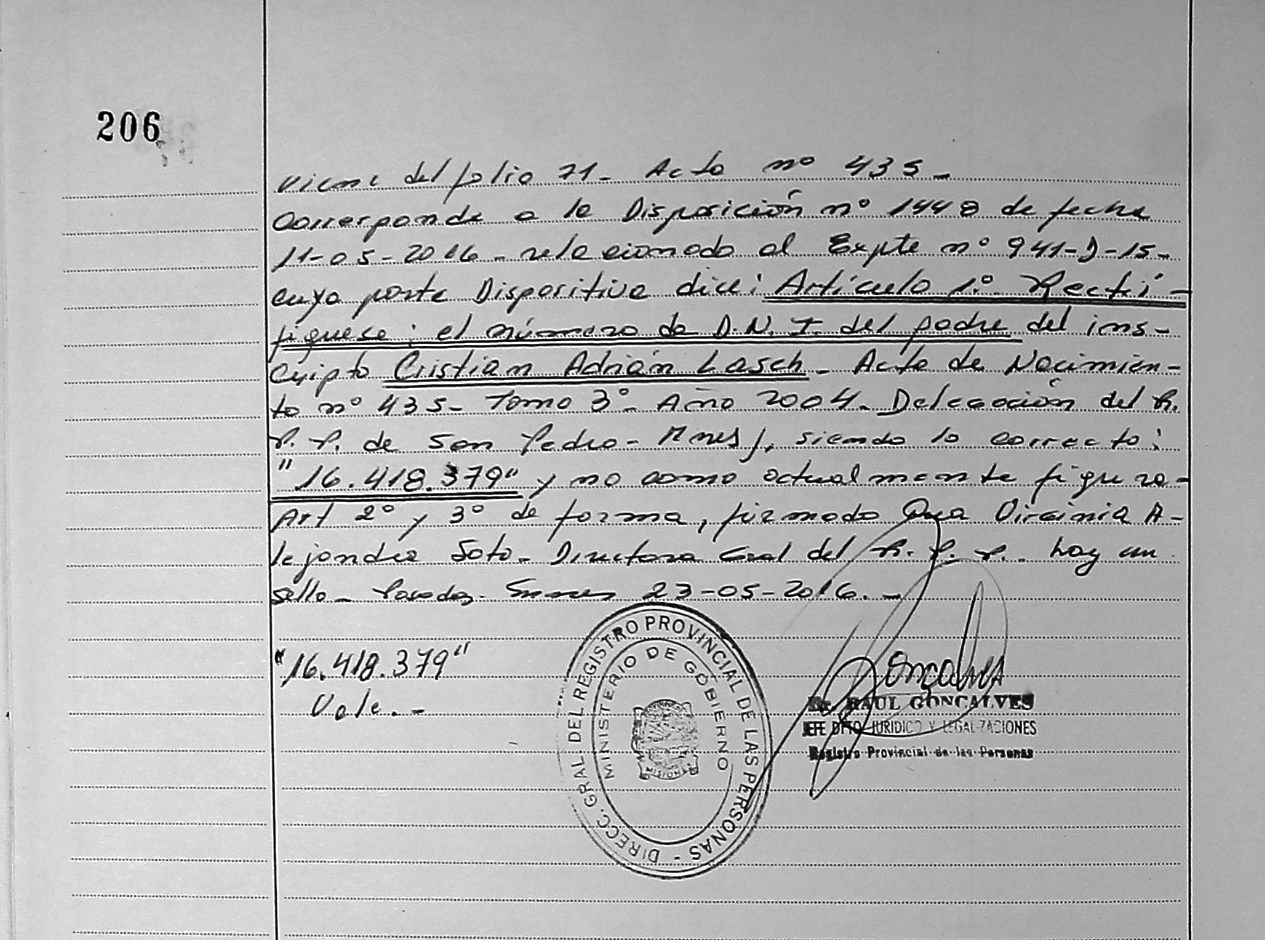 206
Viene del folio 71. Acta nº 435.
Corresponde a la Disposición nº 1448 de fecha
11-05-2016. relacionado al Expte nº 941-D-15.
cuya parte Dispositiva dice: Artículo 1º. Recti-
fíquese: el número de D.N.I. del padre del ins-
cripto Cristian Adrián Lasch. Acta de Nacimien-
to nº 435. Tomo 3º. Año 2004. Delegación del R.
P. P. de San Pedro - Mnes), siendo lo correcto:
"16.418.379" y no como actualmente figura.
Art 2º y 3º de forma, firmado Dra Virginia A-
lejandra Soto. Directora Gral del R. P. P. hay un
sello. Posadas. Mnes 23-05-2016.-
"16.418.379"
Vale.-
DIRECC. GRAL DEL REGISTRO PROVINCIAL DE LAS PERSONAS -
MINISTERIO DE GOBIERNO
MISIONES
Goncalves
Dr. RAUL GONCALVES
JEFE DPTO JURIDICO Y LEGALIZACIONES
Registro Provincial de las Personas